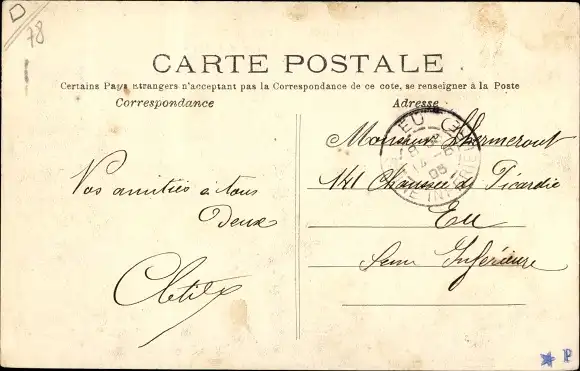 D
78
CARTE POSTALE
Certains Pays étrangers n'acceptant pas la Correspondance de ce côté, se renseigner à la Poste
Correspondance
Adresse
Vos amitiés à tous
Deux
Monsieur Lhermerout
141 Chaussée de Picardie
Eu
Seine Inférieure
EU
05
P